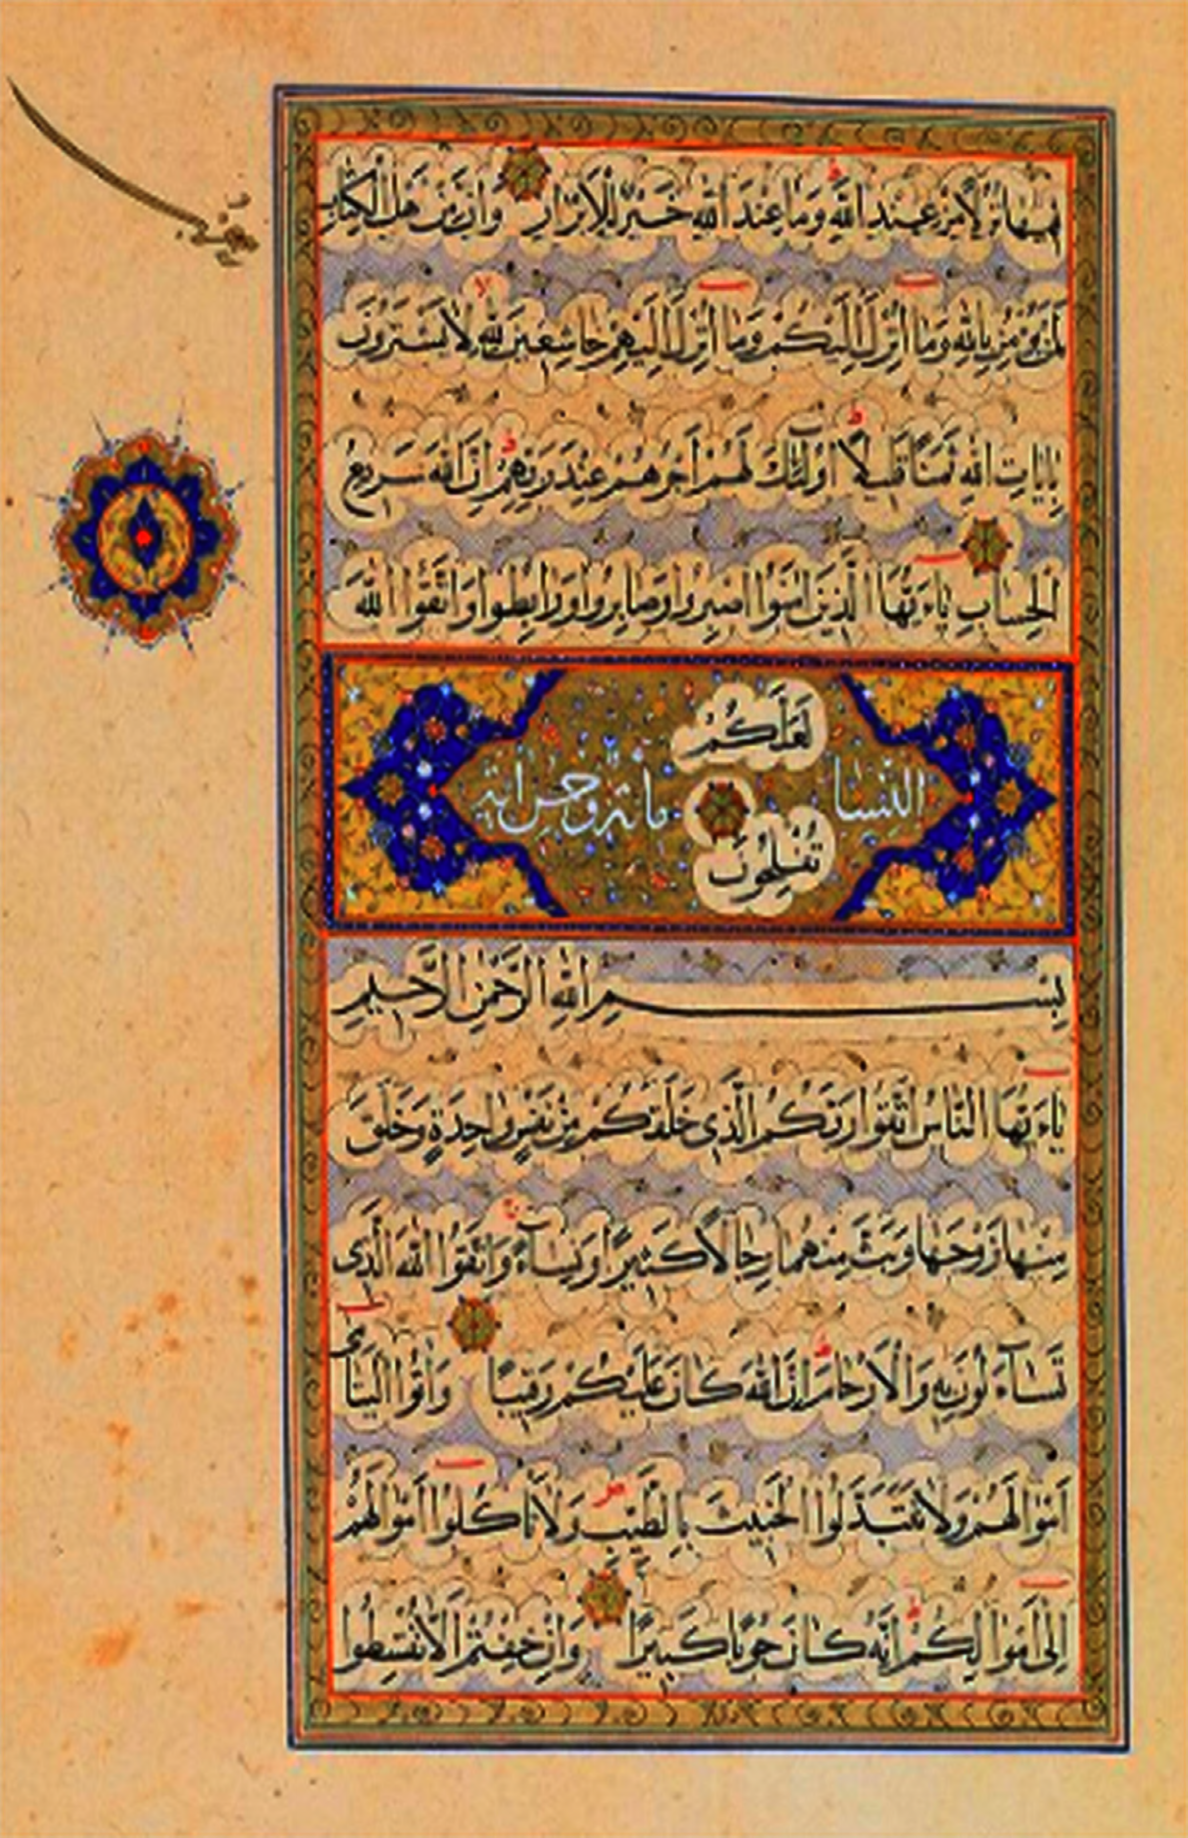 فيها نزلا من عند الله وما عند الله خير للأبرار وإن من أهل الكتاب
لمن يؤمن بالله وما أنزل إليكم وما أنزل إليهم خاشعين لله لا يشترون
بآيات الله ثمنا قليلا أولئك لهم أجرهم عند ربهم إن الله سريع
الحساب ياءيها الذين آمنوا اصبروا وصابروا ورابطوا واتقوا الله
لعلكم
النسا مائة و آية
تفلحون
بسم الله الرحمن الرحيم
ياءيها الناس اتقوا ربكم الذي خلقكم من نفس واحدة وخلق
منها زوجها وبث منهما رجالا كثيرا ونساء واتقوا الله الذي
تساءلون به والأرحام إن الله كان عليكم رقيبا وآتوا اليتامى
أموالهم ولا تتبدلوا الخبيث بالطيب ولا تأكلوا أموالهم
إلى أموالكم إنه كان حوبا كبيرا وإن خفتم ألا تقسطوا